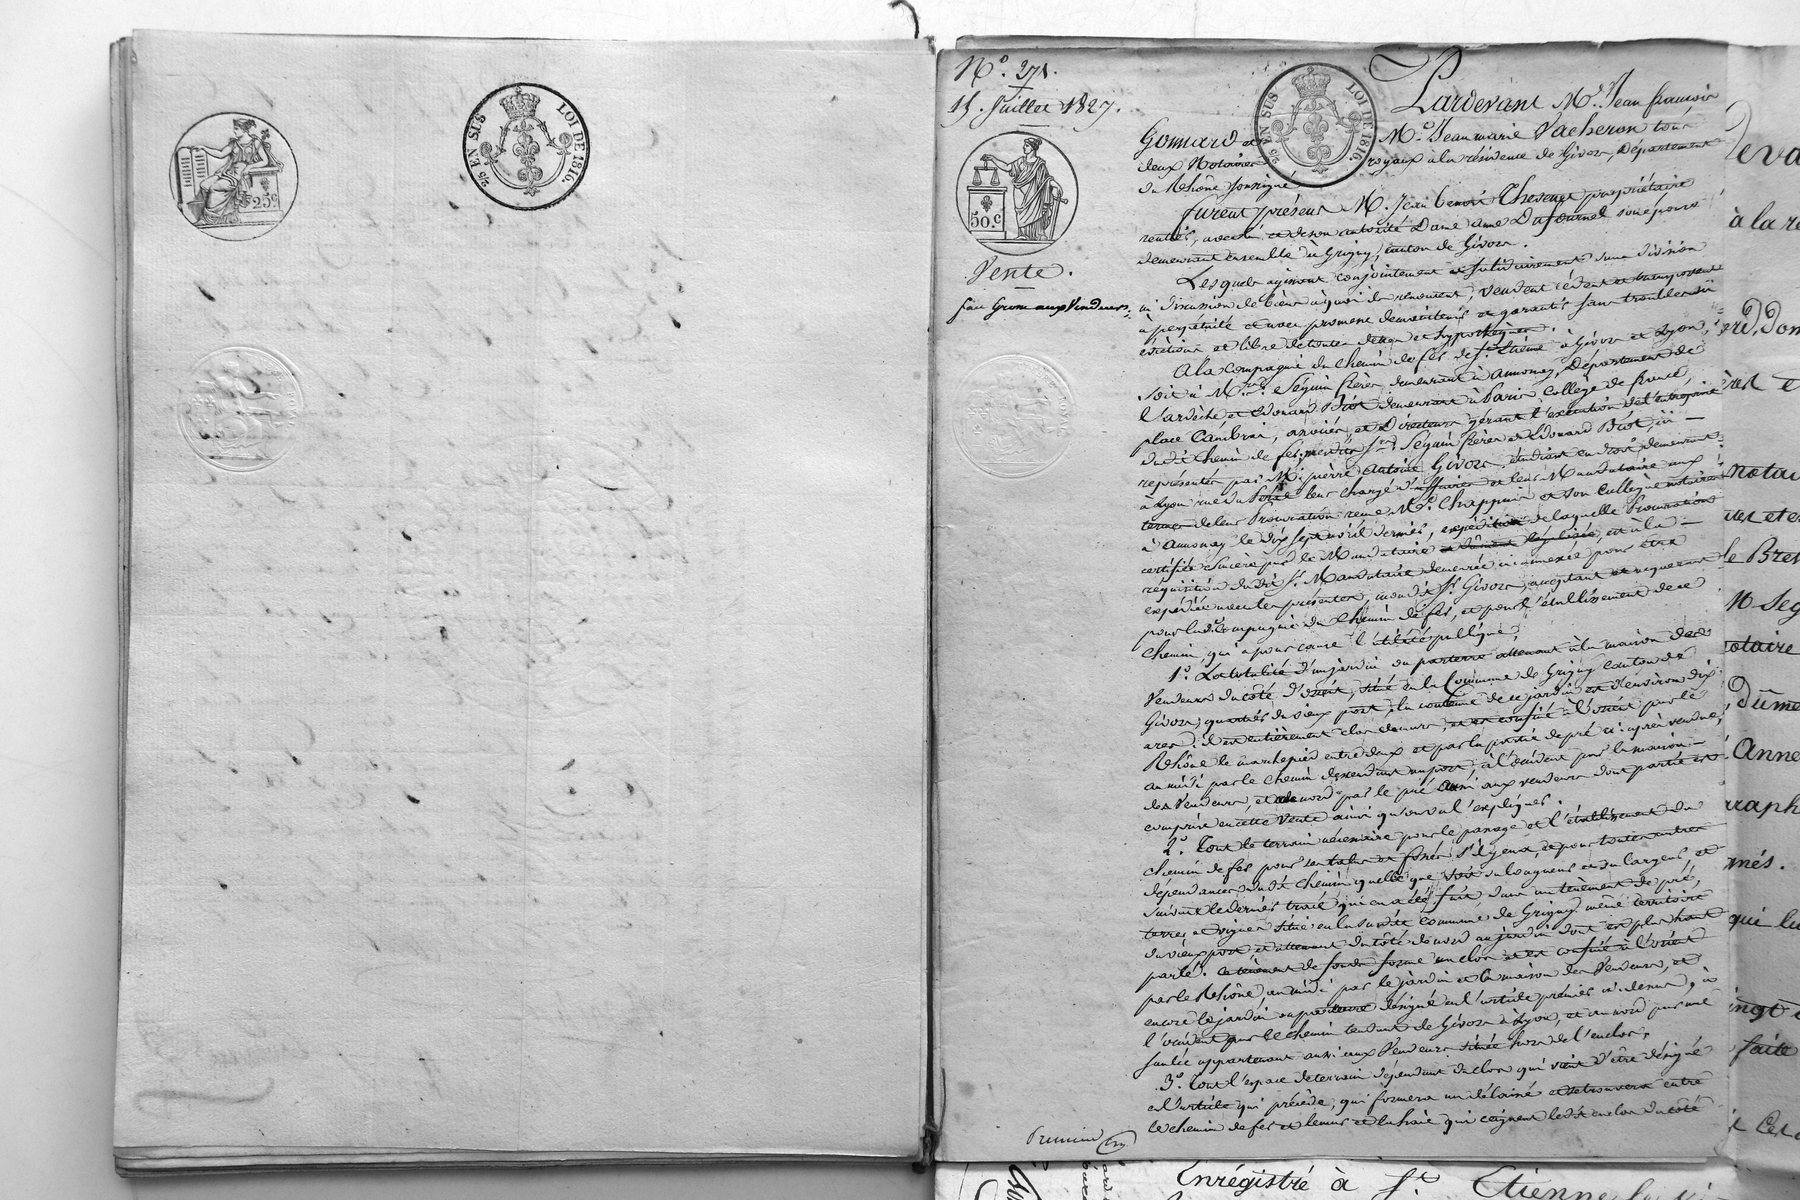 EN SUS
LOI DE 1816.
25 c
N.º 271.
15. Juillet 1827.
EN SUS
LOI DE 1816.
50. c
Vente.
Pardevant M.e Jean françois
Gomard et M.e Jean marie Vacheron tous
deux Notaires royaux à la résidence de Givors, Département
du Rhône soussignés
furent présens M. Jean benoit propriétaire
rentier, avec lui et de son autorité Dame anne Dufournel son épouse
demeurant ensemble à Grigny, canton de Givors.
Lesquels agissant conjointement et solidairement sans division
ni discussion de biens à quoi ils renoncent, vendent cèdent et transportent
à perpétuité et avec promesse de maintenir et garantir sans troubles ni
évictions et libre de toutes dettes et hypothèques.
A la compagnie du chemin de fer de St. Etienne à Givors et Lyon,
soit à M.rs Séguin frères, demeurant à annonay, Département de
l'ardèche et Edouard Biot demeurant à Paris collège de france,
place Cambrai, associés et Directeurs gérant l'exécution de l'entreprise
dudit chemin de fer, mesdits S.rs Séguin frères et Edouard Biot, ici
représentés par M. pierre antoine Givors, étudiant en droit demeurant
à Lyon rue du leur chargé d'affaires et leur Mandataire aux
termes de leur Procuration reçue M.e Chappuis et son collègue notaires
à annonay le dix sept avril dernier, expédition de laquelle Procuration
certifiée sincère par le Mandataire et à la
réquisition dudit S.r Mandataire demeurée ici annexée pour être
expédiée avec les présentes, mondit S.r Givors, acceptant et requérant
pour lad.e Compagnie du Chemin de fer, et pour l'établissement de ce
chemin, qui a pour cause l'utilité publique,
1.º La totalité d'un jardin ou parterre attenant à la maison des
Vendeurs du côté d'orient, situé en la Commune de Grigny canton de
Givors, quartier du vieux port, la contenue de ce jardin est d'environ dix
ares; il est entièrement clos de murs, et est confiné à l'orient par le
Rhône le marchepied entre deux et par la partie de pré ci-après vendue,
au midi par le chemin descendant au port, à l'occident par la maison
des Vendeurs, et au nord par le pré aussi aux vendeurs dont partie est
comprise en cette Vente ainsi qu'on va l'expliquer.
2.º Tout le terrain nécessaire pour le passage et l'établissement du
chemin de fer pour les talus et fossés s'il y en a, et pour toutes autres
dépendances dudit chemin, quelle que soit sa longueur et sa largeur, et
suivant le dernier tracé qui en a été fait, dans un tènement de pré,
terres et vignes situé en la susdite commune de Grigny même territoire
du vieux port et attenant du côté de nord au jardin dont est plus haut
parlé. ce tènement de fonds forme un clos et est confiné à l'orient
par le Rhône, au midi par le jardin et la maison des Vendeurs, et
encore le jardin ou parterre désigné en l'article premier ci-dessus, à
l'occident par le chemin tendant de Givors à Lyon, et au nord par une
saulée appartenant aussi aux Vendeurs située hors de l'enclos,
3.º Tout l'espace de terrain dépendant du clos qui vient d'être désigné
en l'article qui précède, qui formera un délaissé et se trouvera entre
le chemin de fer et les murs et la haie qui ceignent ledit enclos du côté
Enrégistré à St. Etienne